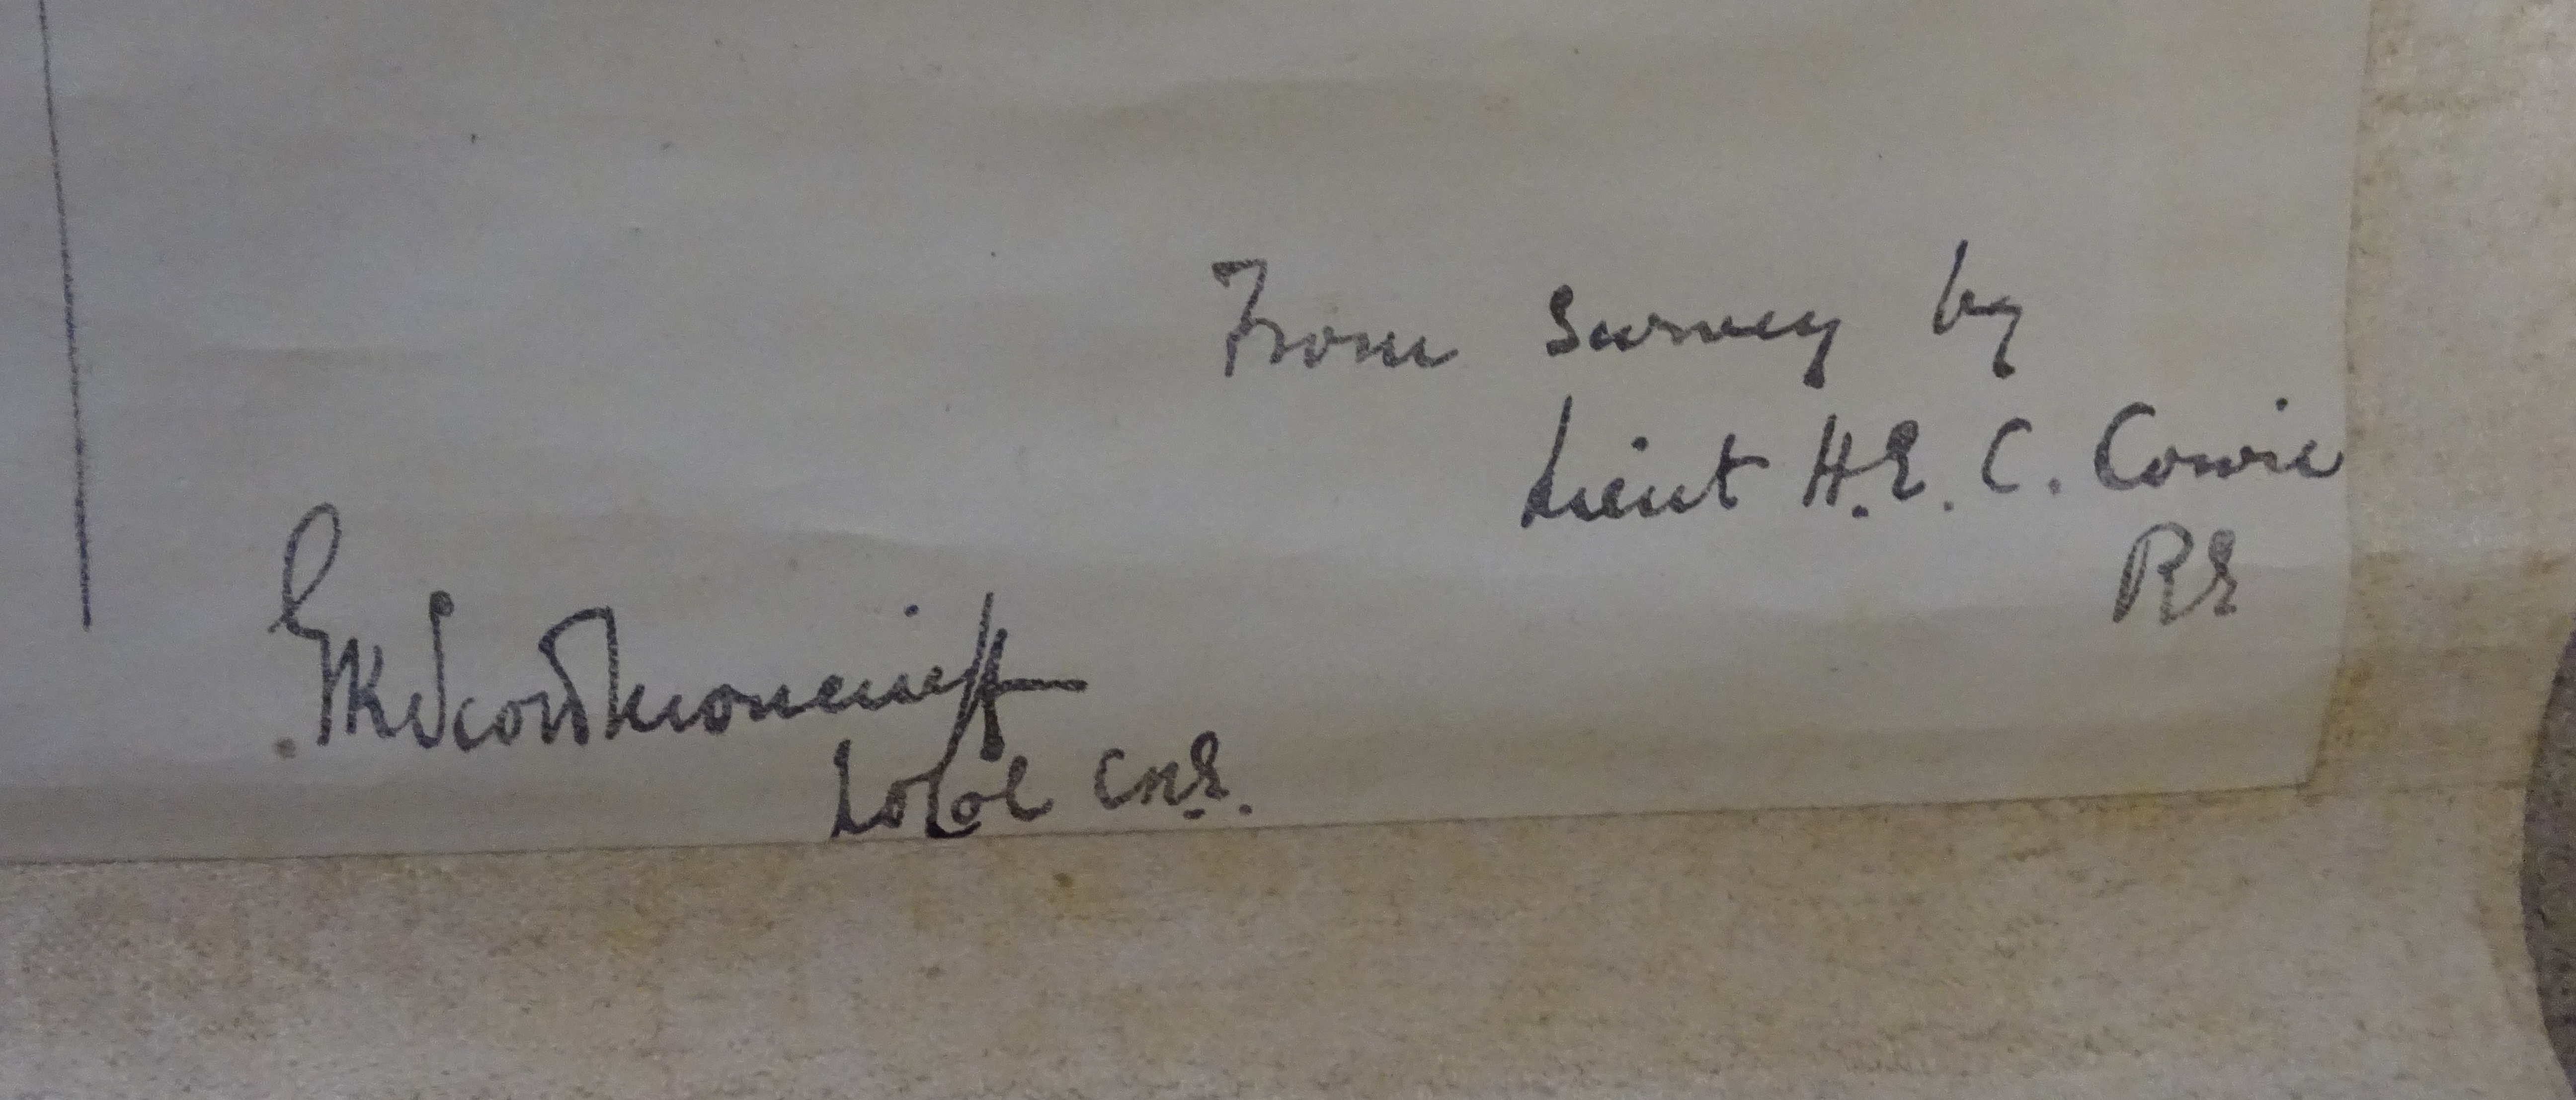 From Survey by
Lieut H.E.C. Cowie
RE
GKScottMoncrieff
Lt Col CRE.